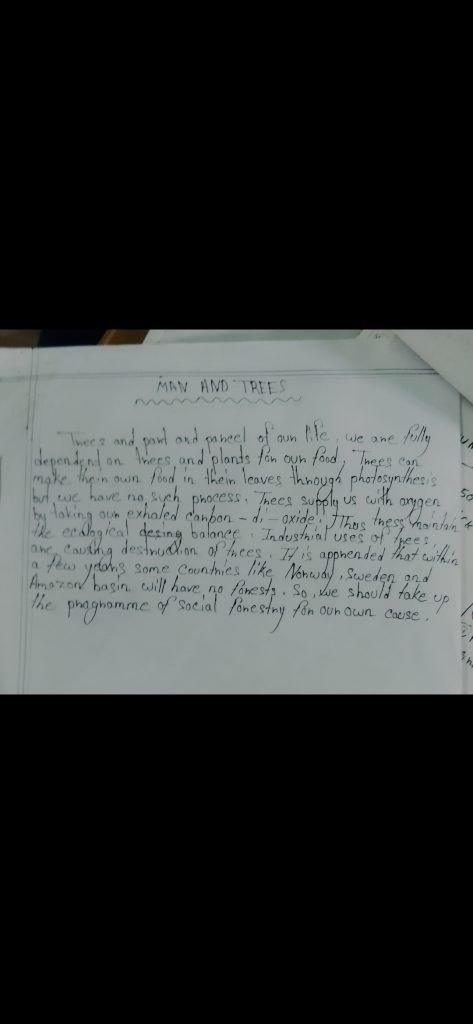 MAN AND TREES
Trees and part and parcel of our life. we are fully
dependent on trees and plants for our food. Trees can
make their own food in their leaves through photosynthesis
but we have no such process. Trees supply us with oxygen
by taking our exhaled carbon - di - oxide. Thus maintain
the ecological desing balance. Industrial uses of trees
are causing destruction of trees. It is apprended that within
a few years some countries like Norway, Sweden and
Amazon basin will have no forests. So, we should take up
the programme of social forestry for our own cause.